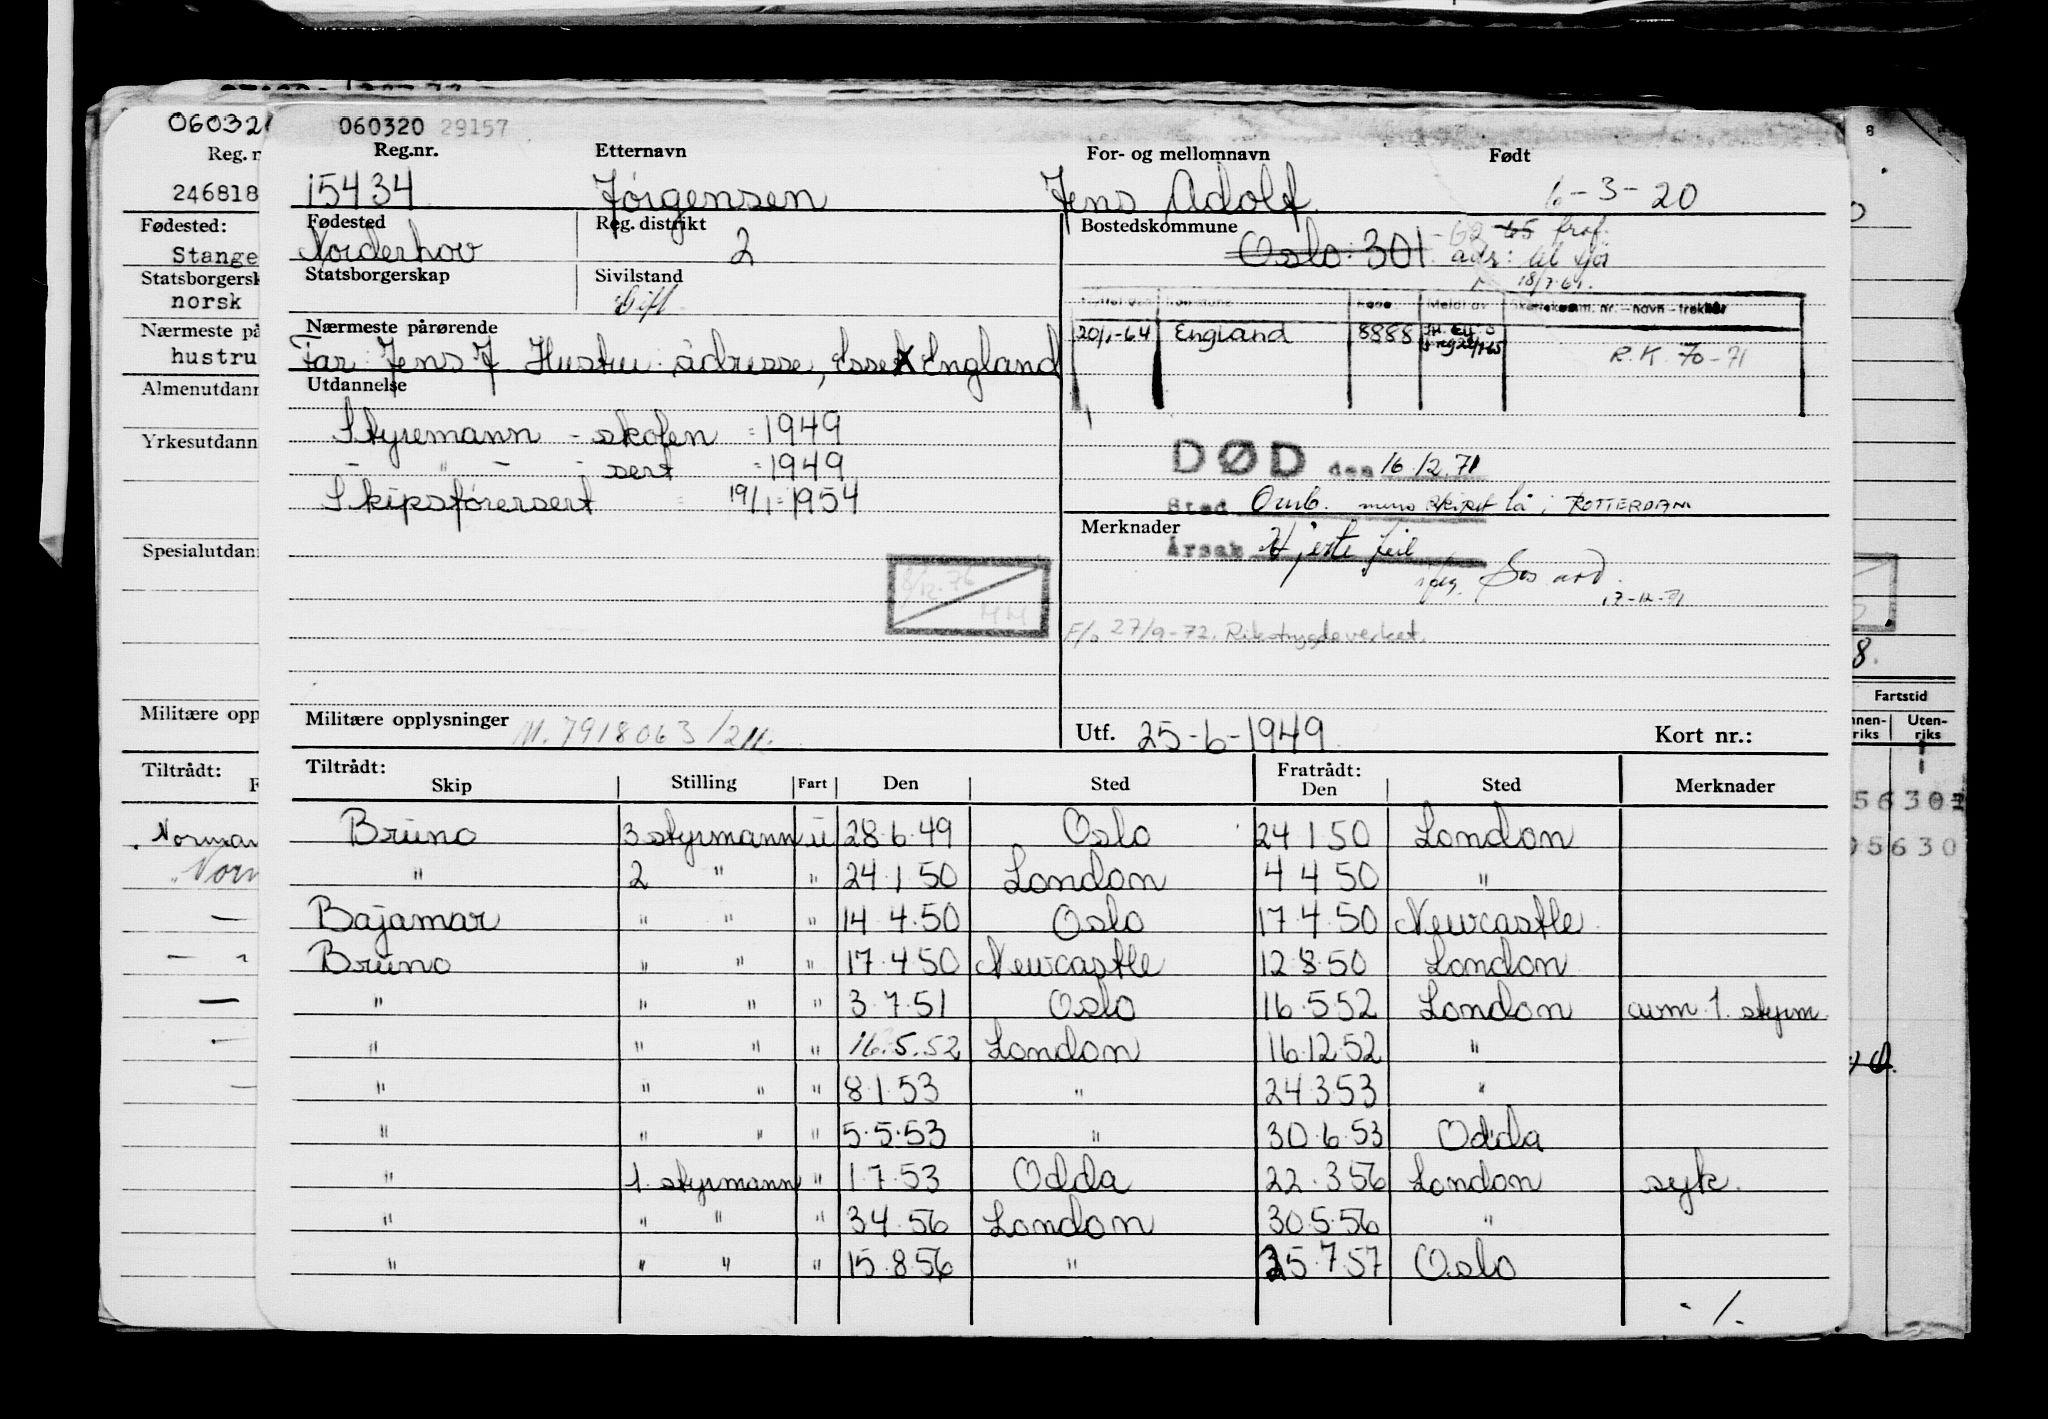 060320 29157
Reg.nr. Etternavn For- og mellomnavn Født
15434 Jørgensen Jens Adolf 6-3-20
Fødested Reg. distrikt Bostedskommune
Norderhov 2 Oslo 301
Statsborgerskap Sivilstand
Gift
18/7-69.
Nærmeste pårørende
Far: Jens J Hustru adresse, Essex England
20/1-64 England 8888
R.K. 70-71
Utdannelse
Styremann - skolen = 1949
- " - - sert = 1949
Skipsførersert = 19/1 = 1954
DØD den 16.12.71
Sted Omb. mens skipet lå i ROTTERDAM
Merknader
Årsak Hjerte feil
17-12-71
8/12.76
MM
F/o 27/9-72. Rikstrygdeverket.
Militære opplysninger M. 7918063/211.
Utf. 25-6-1949 Kort nr.:
Tiltrådt: Fratrådt:
Skip Stilling Fart Den Sted Den Sted Merknader
Bruno 3 styrmann u 28.6.49 Oslo 24 1 50 London
" 2 " " 24.1.50 London 4 4 50 "
Bajamar " " " 14 4.50 Oslo 17.4.50 Newcastle
Bruno " " " 17.4.50 Newcastle 12.8.50 London
" " " " 3.7.51 Oslo 16.5.52 London avm. 1. styrm.
" " " " 16.5.52 London 16.12.52 "
" " " " 8.1.53 " 24.3.53 "
" " " " 5.5.53 " 30.6.53 Odda
" 1. styrmann " 1.7.53 Odda 22.3.56 London syk.
" " " " 3 4.56 London 30.5.56 "
" " " " 15.8.56 " 25.7.57 Oslo
./.
Reg. n
246818
Fødested:
Stange
Statsborgersk
norsk
Nærmeste på
hustru
Almenutdann
Yrkesutdann
Spesialutdan
Militære opp
Tiltrådt:
Norman
Norm
8
8.
Fartstid
Uten-
riks
5630
05630